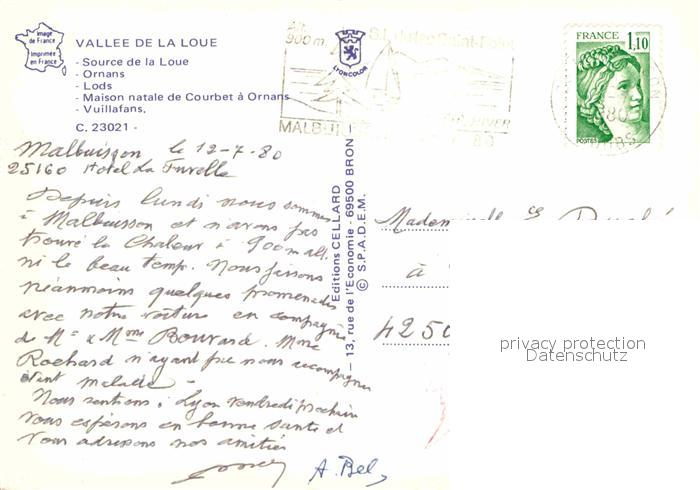 Image
de France
Imprimée
en France
VALLEE DE LA LOUE
- Source de la Loue
- Ornans
- Lods
- Maison natale de Courbet à Ornans
- Vuillafans.
C. 23021 -
Alt.
900 m.
S.I. du lac Saint-Point
HIVER
MALBUI
LYONCOLOR
FRANCE
1,10
POSTES
80
DOUBS
Malbuisson le 12-7-80
25160 Hotel La
Depuis lundi nous sommes
à Malbuisson et n'avons pas
trouvé la Chaleur à 900m alt.
ni le beau temp. Nous faisons
néanmoins quelques promenades
avec notre voiture en compagnie
de Mr & Mme Bouvard. Mme
Rochard n'ayant pu nous accompagner
étant malade -
Nous rentrons à Lyon vendredi prochain
Vous espérons en bonne santé et
Vous adressons nos amitiés
A. Bel
Editions CELLARD
- 13, rue de l'Economie - 69500 BRON -
© S.P.A.D.E.M.
Mademoiselle
à
4250
privacy protection
Datenschutz